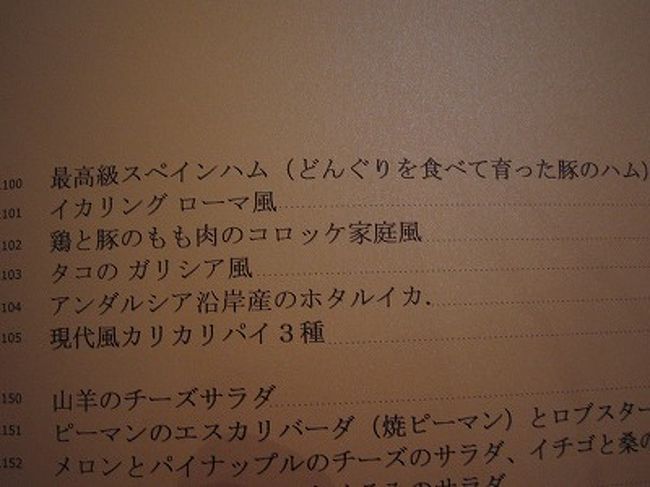 100 最高級スペインハム（どんぐりを食べて育った豚のハム)
101 イカリング ローマ風
102 鶏と豚のもも肉のコロッケ家庭風
103 タコの ガリシア風
104 アンダルシア沿岸産のホタルイカ.
105 現代風カリカリパイ３種
150 山羊のチーズサラダ
151 ピーマンのエスカリバーダ（焼ピーマン）とロブスター
152 メロンとパイナップルのチーズのサラダ、イチゴと桑の
のサラダ